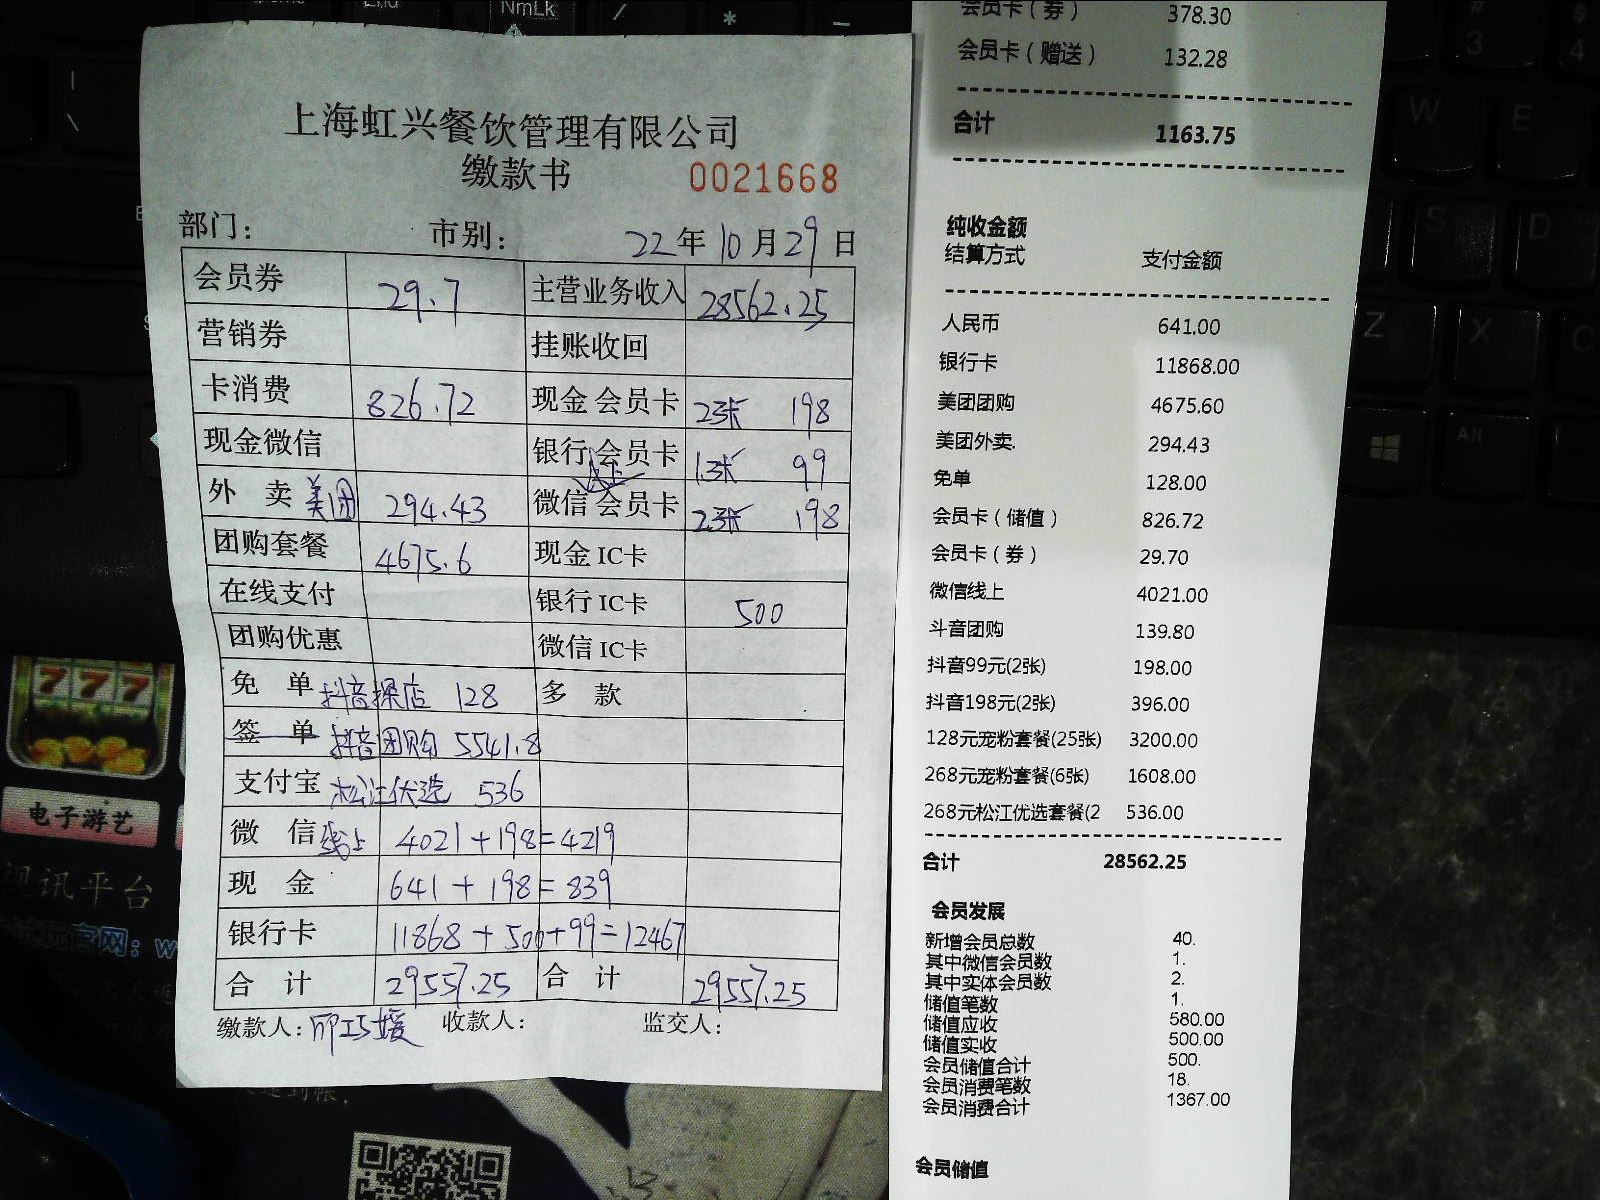 NmLk
上海虹兴餐饮管理有限公司
缴款书 0021668
部门： 市别： 22年10月29日
会员券 29.7 主营业务收入 28562.25
营销券 挂账收回
卡消费 826.72 现金会员卡 2张 198
现金微信 银行会员卡 1张 99
外 卖 美团 294.43 微信会员卡 2张 198
团购套餐 4675.6 现金IC卡
在线支付 银行IC卡 500
团购优惠 微信IC卡
免 单 抖音探店 128 多 款
签 单 抖音团购 5541.8
支付宝 松江优选 536
微 信 线上 4021+198=4219
现 金 641+198=839
银行卡 11868+500+99=12467
合 计 29557.25 合 计 29557.25
缴款人： 收款人： 监交人：
会员卡（券） 378.30
会员卡（赠送） 132.28
合计 1163.75
纯收金额
结算方式 支付金额
人民币 641.00
银行卡 11868.00
美团团购 4675.60
美团外卖. 294.43
免单 128.00
会员卡（储值） 826.72
会员卡（券） 29.70
微信线上 4021.00
斗音团购 139.80
抖音99元(2张) 198.00
抖音198元(2张) 396.00
128元宠粉套餐(25张) 3200.00
268元宠粉套餐(6张) 1608.00
268元松江优选套餐(2 536.00
合计 28562.25
会员发展
新增会员总数 40.
其中微信会员数 1.
其中实体会员数 2.
储值笔数 1.
储值应收 580.00
储值实收 500.00
会员储值合计 500.
会员消费笔数 18.
会员消费合计 1367.00
会员储值
777
电子游艺
视讯平台
官网：w
W E
S D
Z X C
Alt
3 4